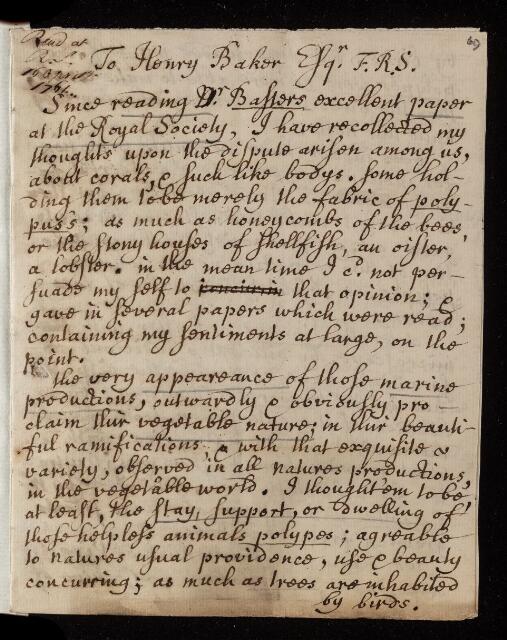 Read at
R.S.
1761.
69
To Henry Baker Esqr. F.R.S.
Since reading Dr. Basters excellent paper
at the Royal Society, I have recollected my
thoughts upon the dispute arisen among us,
about corals, & such like bodys. some hol-
ding them to be merely the fabric of poly-
pus's; as much as honeycombs of the bees
or the stony houses of shellfish, an oister,
a lobster. in the mean time I cd. not per-
suade my self to concur in that opinion; &
gave in several papers which were read;
containing my sentiments at large, on the
point.
the very appeareance of those marine
productions, outwardly & obviously pro-
claim thir vegetable nature; in thir beauti-
ful ramifications, & with that exquisite &
variety, observed in all natures productions,
in the vegetable world. I thought em to be
at least, the stay, support, or dwelling of
those helpless animals polypes; agreable
to natures usual providence, use & beauty
concurring; as much as trees are inhabited
by birds.